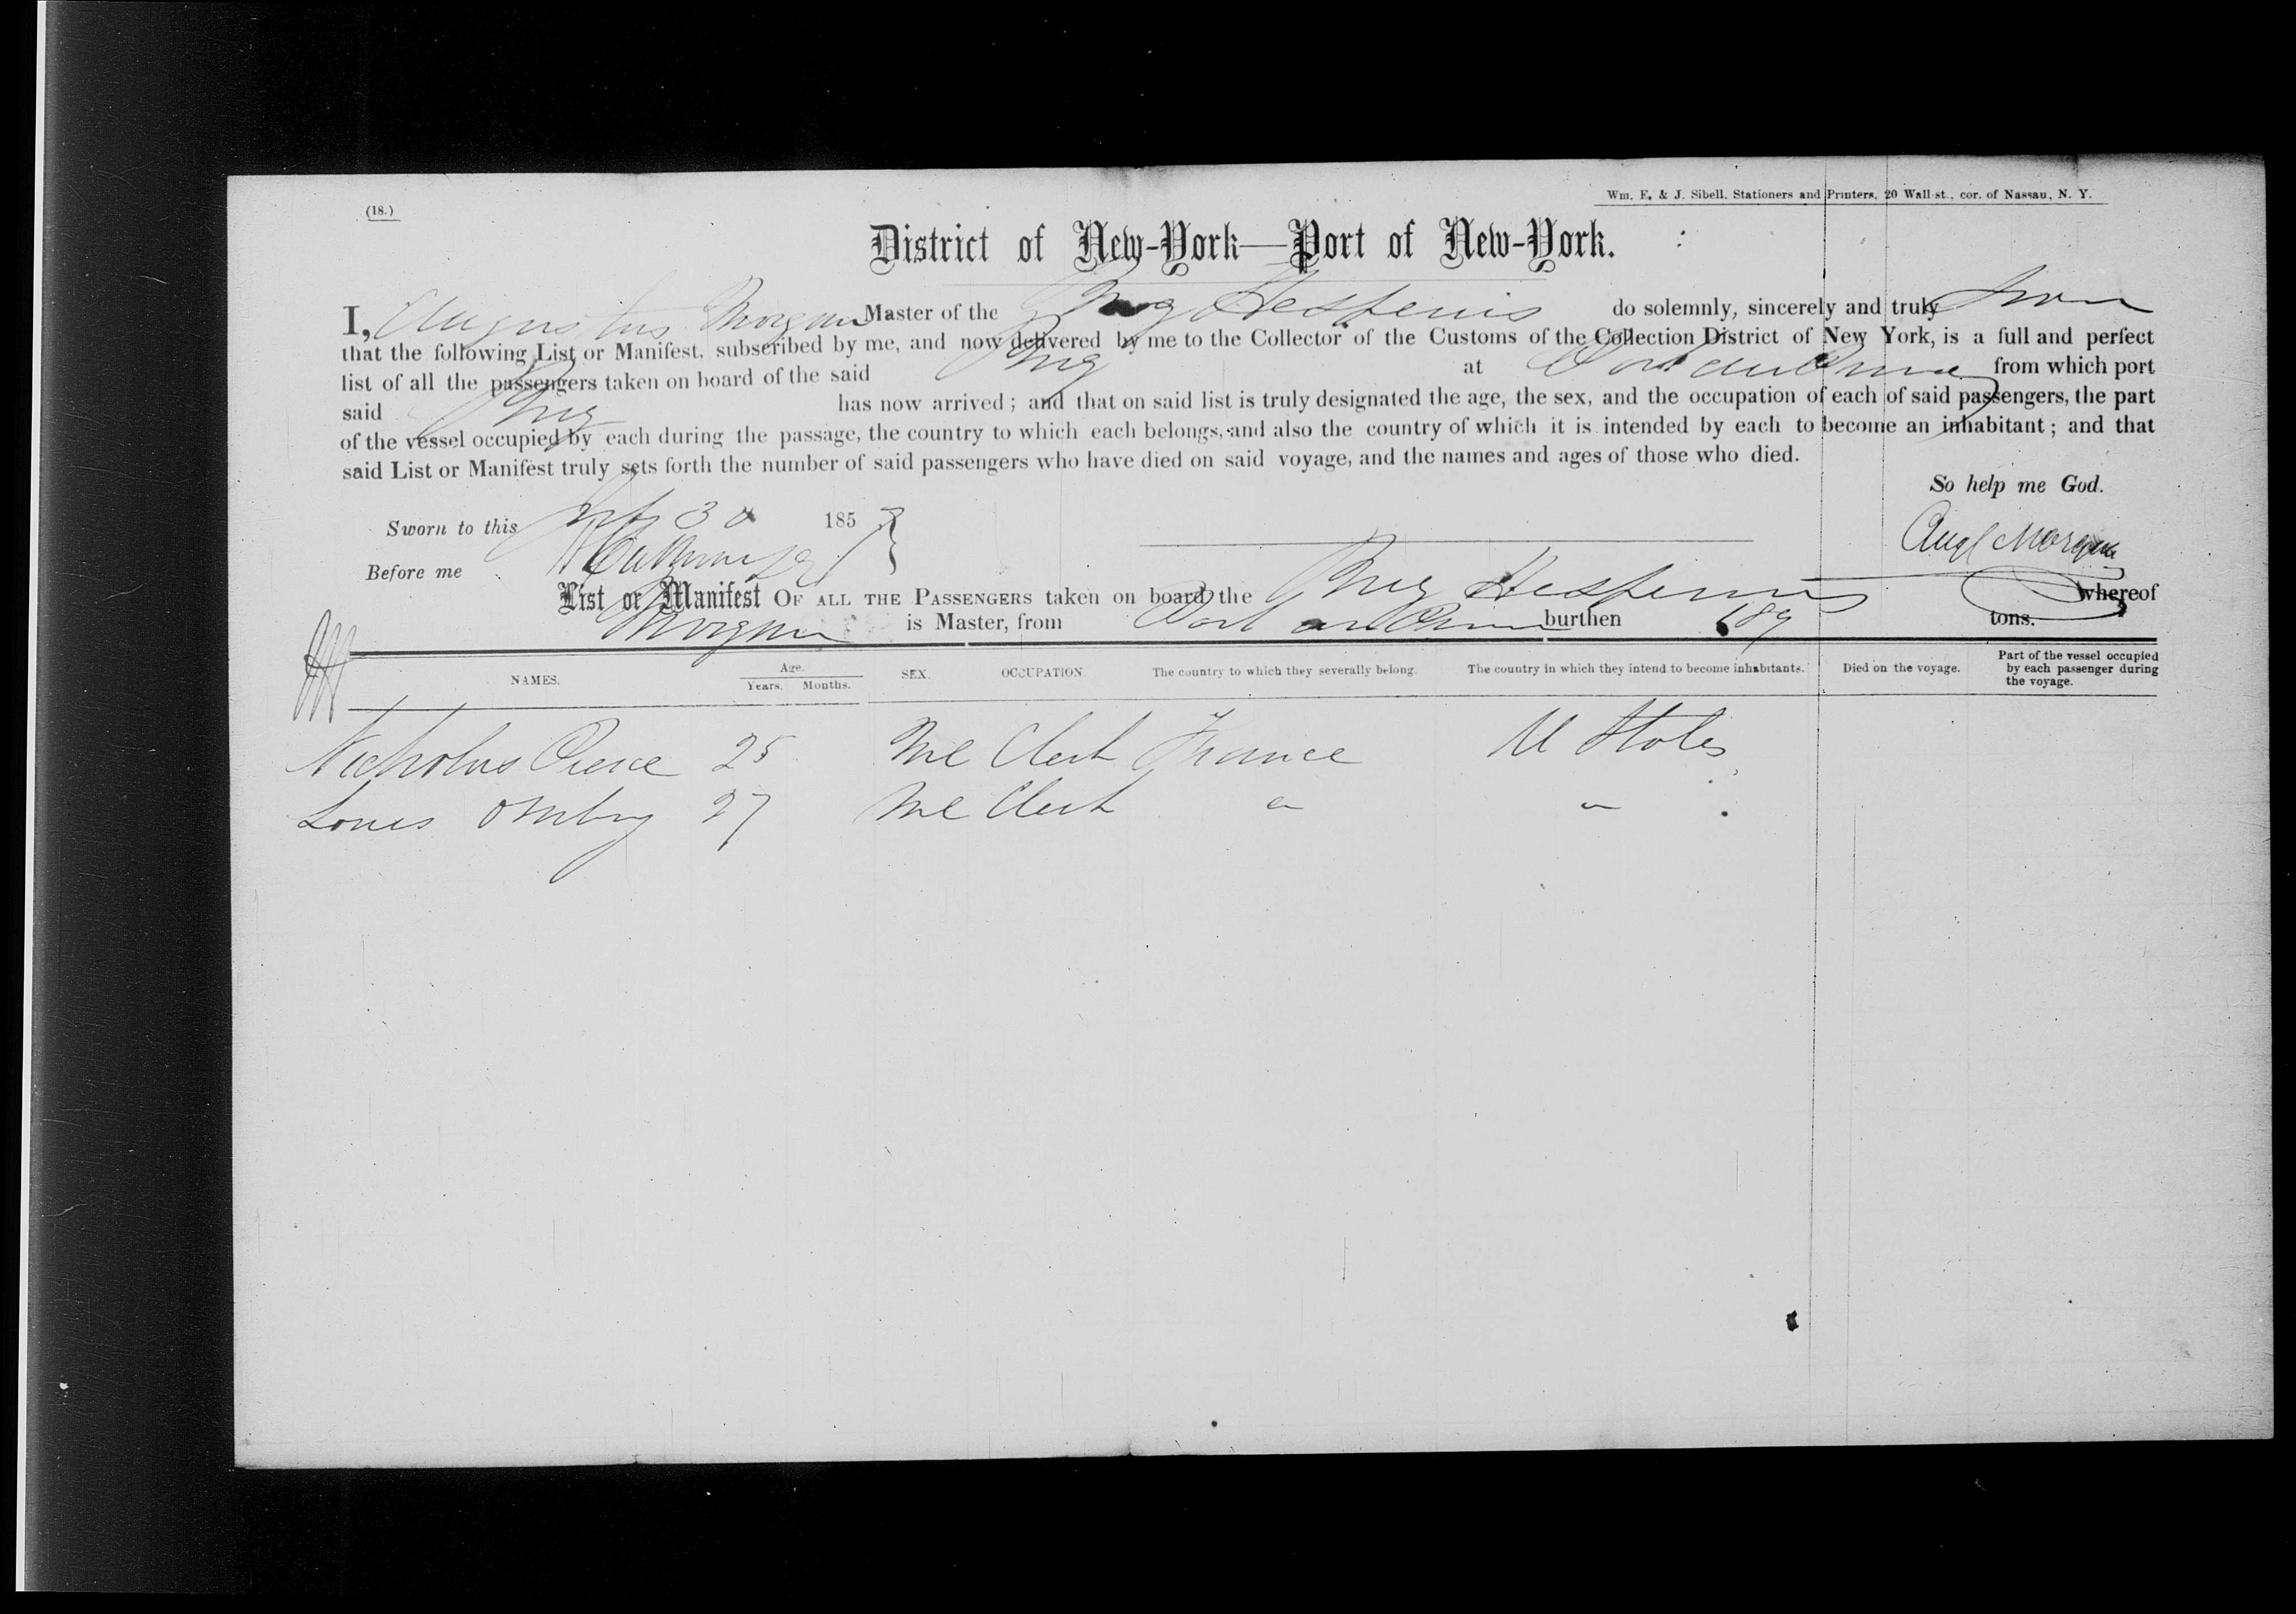 (18.)
Wm. E. & J. Sibell, Stationers and Printers, 20 Wall-st., cor. of Nassau, N. Y.
District of New-York—Port of New-York.
I, Augustus Morgan Master of the Brig Hesperus do solemnly, sincerely and truly swear
that the following List or Manifest, subscribed by me, and now delivered by me to the Collector of the Customs of the Collection District of New York, is a full and perfect
list of all the passengers taken on board of the said Brig at Port au Prince from which port
said Brig has now arrived; and that on said list is truly designated the age, the sex, and the occupation of each of said passengers, the part
of the vessel occupied by each during the passage, the country to which each belongs, and also the country of which it is intended by each to become an inhabitant; and that
said List or Manifest truly sets forth the number of said passengers who have died on said voyage, and the names and ages of those who died.
So help me God.
Sworn to this 30 185
Augs Morgan
Before me
List or Manifest OF ALL THE PASSENGERS taken on board the Brig Hesperus whereof
Morgan is Master, from Port au Prince burthen 189 tons.
NAMES. Age. Years. Months. SEX. OCCUPATION. The country to which they severally belong. The country in which they intend to become inhabitants. Died on the voyage. Part of the vessel occupied by each passenger during the voyage.
Nicholas Pierce 25 Ml Clerk France U States
Louis 27 Ml Clerk " "